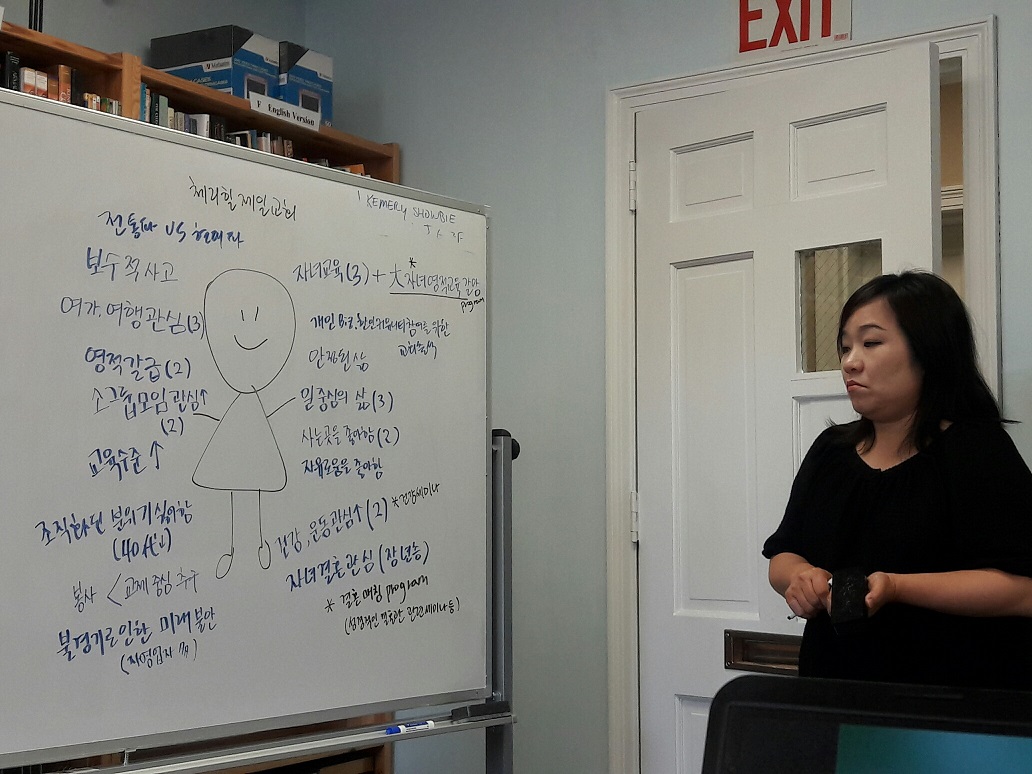 EXIT
Verbatim
F English Version
체리힐제일교회
KEMERY SHOWBIE
전통파 VS 현대파
보수적 사고
여가, 여행관심(3)
영적갈급(2)
소그룹모임 관심↑
(2)
교육수준↑
조직화된 분위기 싫어함
봉사 < 교제 중심 추구
불경기로 인한 미래 불안
자녀교육(3) + 大 *자녀영적교육 갈망
program
개인 Biz, 한인커뮤니티참여를 위한
안정된 삶
일 중심의 삶(3)
사는곳을 좋아함(2)
자유로움을 좋아함
건강, 운동관심↑(2) *건강세미나
자녀결혼관심(장년층)
* 결혼매칭 program
(성경적인 결혼관 관련세미나등)